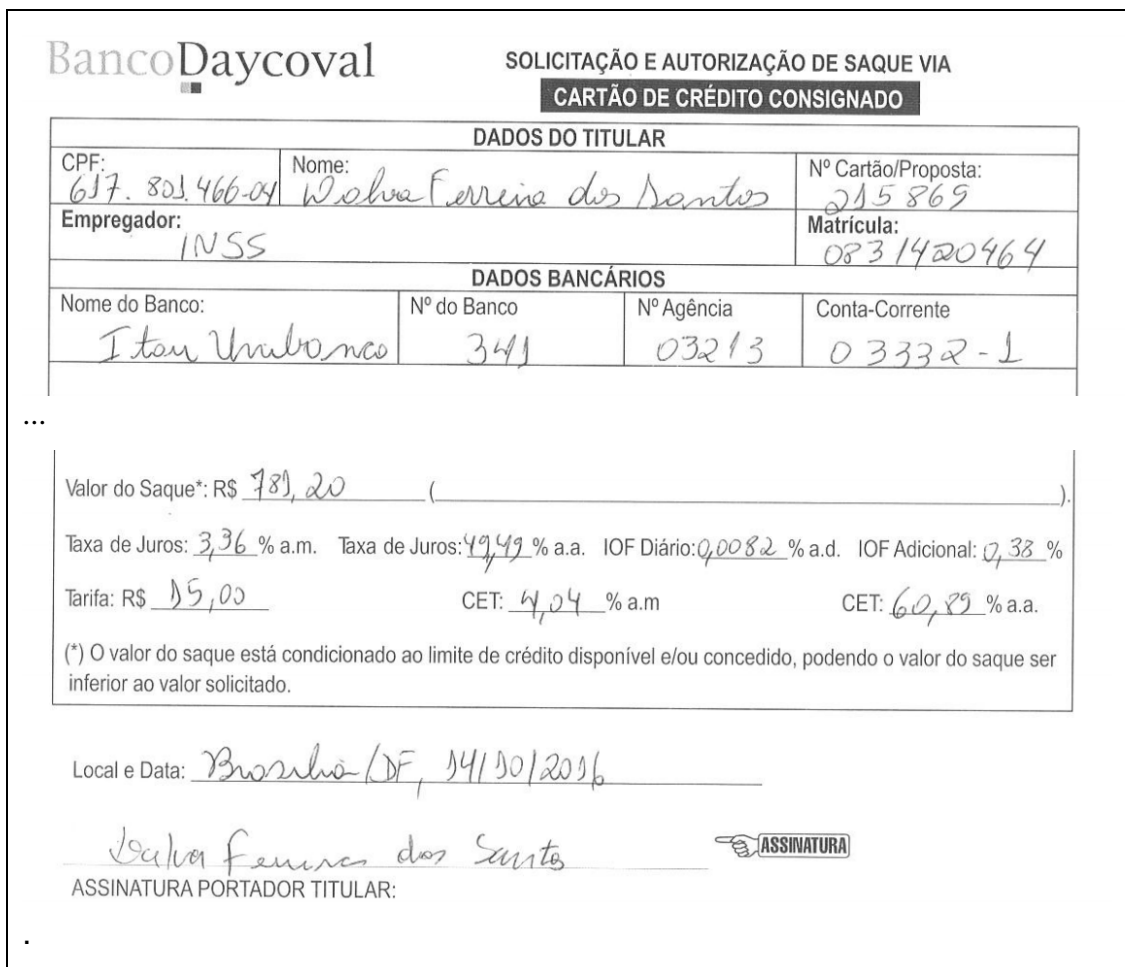 BancoDaycoval
SOLICITAÇÃO E AUTORIZAÇÃO DE SAQUE VIA
CARTÃO DE CRÉDITO CONSIGNADO
DADOS DO TITULAR
CPF: 617.801.466-04 Nome: Dalva Ferreira dos Santos Nº Cartão/Proposta: 215869
Empregador: INSS Matrícula: 0831420464
DADOS BANCÁRIOS
Nome do Banco: Itau Unibanco Nº do Banco 341 Nº Agência 03213 Conta-Corrente 03332-1
...
Valor do Saque*: R$ 781,20 ( ).
Taxa de Juros: 3,36 % a.m. Taxa de Juros: 49,49 % a.a. IOF Diário: 0,0082 % a.d. IOF Adicional: 0,38 %
Tarifa: R$ 15,00 CET: 4,04 % a.m CET: 60,89 % a.a.
(*) O valor do saque está condicionado ao limite de crédito disponível e/ou concedido, podendo o valor do saque ser
inferior ao valor solicitado.
Local e Data: Brasilia/DF, 14/10/2016
Dalva Ferreira dos Santos
ASSINATURA
ASSINATURA PORTADOR TITULAR:
.